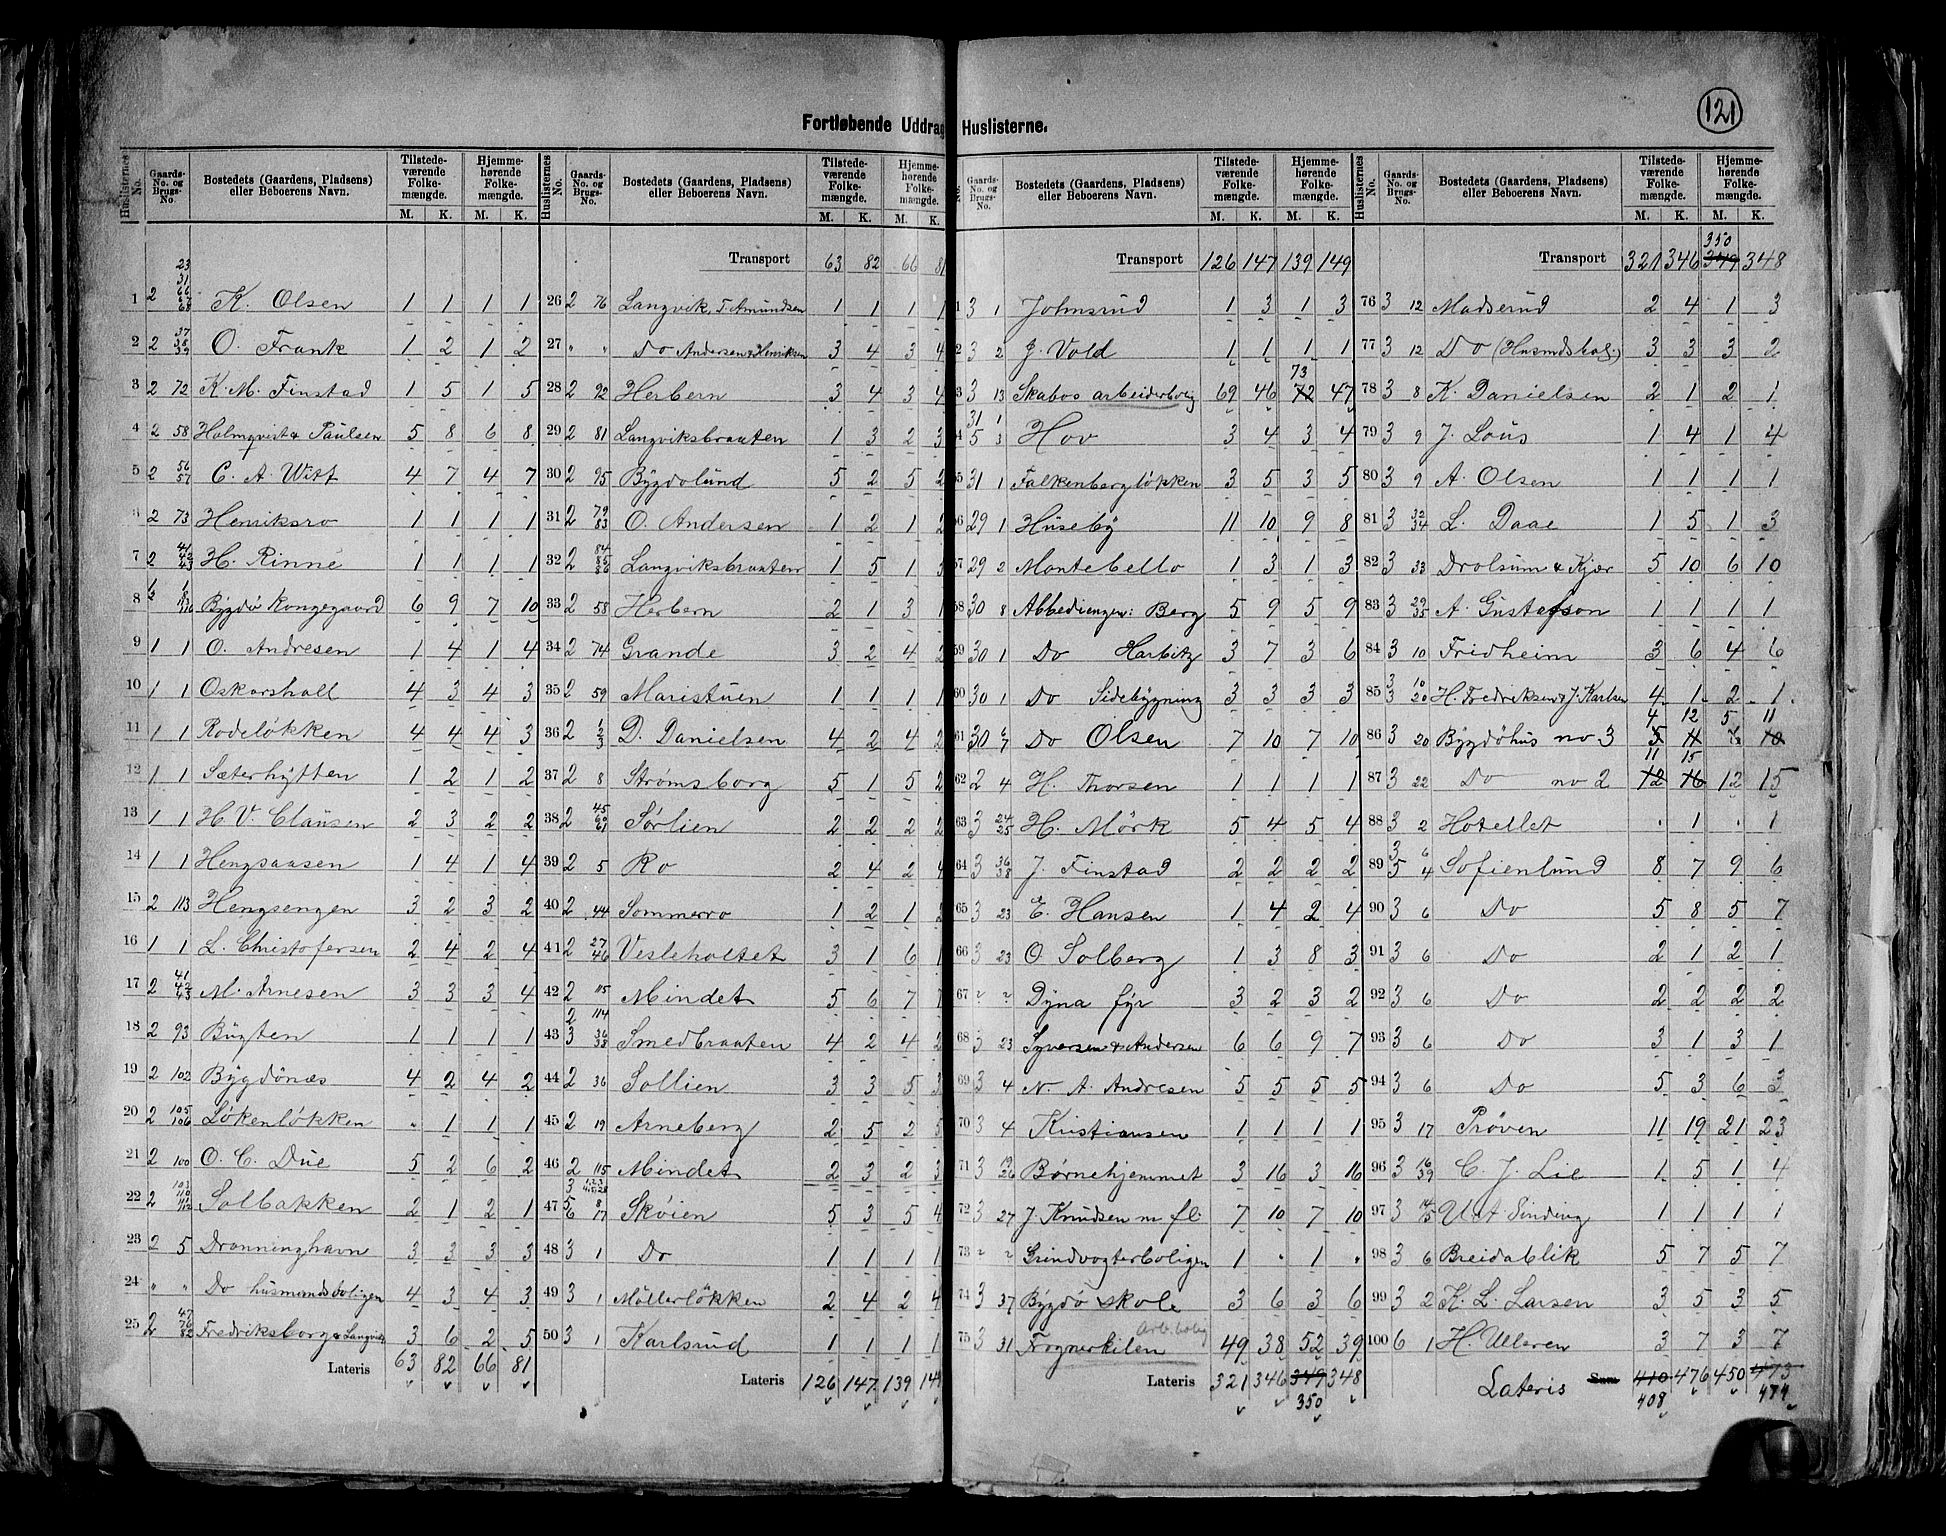 121
Fortløbende Uddrag Huslisterne.
Huslisternes No. Gaards-No. og Brugs-No. Bostedets (Gaardens, Pladsens) eller Beboerens Navn. Tilstedeværende Folkemængde. M. K. Hjemmehørende Folkemængde. M. K.
1 2 23 31 66 68 K. Olsen 1 1 1 1
2 2 37 38 39 O. Frank 1 2 1 2
3 2 72 K. M. Finstad 1 5 1 5
4 2 58 Holmqvist & Paulsen 5 8 6 8
5 2 56 57 C. A. Witt 4 7 4 7
2 73 Henriksro 1 1 1 1
7 2 H. Rinne 1 1 1 1
8 Bygdø Kongegaard 6 9 7 10
9 1 1 O. Andresen 1 4 1 4
10 1 1 Oskarshall 4 3 4 3
11 1 1 Rodeløkken 4 4 4 3
12 1 1 Sæterhytten 1 2 1 2
13 1 1 H. V. Clausen 2 3 2 2
14 1 1 Hengsaasen 1 4 1 4
15 2 113 Hengsengen 3 2 3 2
16 1 1 L. Christofersen 2 4 2 4
17 2 41 42 43 M. Arnesen 3 3 3 4
18 2 93 Bugten 1 1 1 1
19 2 102 Bygdönæs 4 2 4 2
20 2 105 106 Løkenløkken . 1 1 1
21 2 100 O. C. Due 5 2 6 2
22 2 103 110 112 Solbakken 2 1 2 1
23 2 5 Dronninghavn 3 3 3 3
24 " " Do husmandsboligen 4 3 4 3
25 2 47 76 82 Fredriksborg & Langvik 3 6 2 5
Lateris 63 82 66 81
Huslisternes No. Gaards-No. og Brugs-No. Bostedets (Gaardens, Pladsens) eller Beboerens Navn. Tilstedeværende Folkemængde. M. K. Hjemmehørende Folkemængde. M. K.
Transport 63 82 66 81
26 2 76 Langvik, T. Amundsen 1 1 1 1
27 " " Do Andersen & Henriksen 3 4 3 4
28 2 92 Herbern 3 4 3 4
29 2 81 Langviksbraaten 1 3 2 3
30 2 95 Bygdølund 5 2 5 2
31 2 79 83 O. Andersen 1 2 1 2
32 2 84 85 86 Langviksbraaten 1 5 1
33 2 58 Herbern 2 1 3 1
34 2 74 Grande 3 2 4 2
35 2 59 Maristuen 1 1 1 1
36 2 1 3 D. Danielsen 4 2 4 2
37 2 8 Strømsborg 5 1 5 2
38 2 45 69 Sørlien 2 2 2 2
39 2 5 Ro 2 4 2 4
40 2 44 Sommerro 1 2 1 2
41 2 27 46 Vesleholtet 3 1 6 1
42 2 115 Mindet 5 6 7 7
43 2 114 3 36 38 Smedbraaten 4 2 4 2
44 2 36 Sollien 3 3 5 3
45 2 19 Arneberg 2 5 2 5
46 2 115 Mindet 2 3 2 3
47 Skøien 5 3 5 4
48 3 1 Do 1 1 1 1
49 3 1 Möllerløkken 2 4 2 4
50 3 1 Karlsrud 1 1 1 1
Lateris 126 147 139 149
Gaards-No. og Brugs-No. Bostedets (Gaardens, Pladsens) eller Beboerens Navn. Tilstedeværende Folkemængde. M. K. Hjemmehørende Folkemængde. M. K.
Transport 126 147 139 149
1 3 1 Johnsrud 1 3 1 3
2 3 2 J. Vold 1 1 1 1
3 3 13 Skabos arbeiderbolig 69 46 72 73 47
4 31 1 5 3 Hov 3 4 3 4
55 31 1 Falkenbergløkken 3 5 3 5
56 29 1 Huseby 11 10 9 8
57 29 2 Montebello 1 3 1 3
58 30 8 Abbediengen: Berg 5 9 5 9
59 30 1 Do Harbitz 3 7 3 6
60 30 1 Do Sidebygning 3 3 3 3
61 30 6 7 Do Olsen 7 10 7 10
62 2 4 H. Thorsen 1 1 1 1
63 3 24 25 H. Mörk 5 4 5 4
64 3 36 38 J. Finstad 2 2 2 2
65 3 23 E. Hansen 1 4 2 4
66 3 23 O Solberg 1 3 8 3
67 " " Dyna fyr 3 2 3 2
68 3 23 Syversen & Andersen 6 6 9 7
69 3 4 N. A. Andresen 5 5 5 5
70 3 4 Kristiansen 1 1 1 1
71 3 19 26 Børnehjemmet 3 16 3 16
72 3 27 J. Knudsen m fl. 7 10 7 10
73 " " Grindvogterboligen 1 . 1 .
74 3 37 Bygdø skole 3 6 3 6
75 3 31 Frognerkilen arb. bolig 49 38 52 39
Lateris 321 346 349 348
350
Huslisternes No. Gaards-No. og Brugs-No. Bostedets (Gaardens, Pladsens) eller Beboerens Navn. Tilstedeværende Folkemængde. M. K. Hjemmehørende Folkemængde. M. K.
350
Transport 321 346 349 348
76 3 12 Madserud 2 4 1 3
77 3 12 Do (Husmdsbol.) 3 3 3 2
78 3 8 K. Danielsen 2 1 2 1
79 3 9 J. Lous 1 4 1 4
80 3 9 A. Olsen 1 1 1 1
81 3 32 34 L. Daae 1 5 1 3
82 3 33 Drolsum & Kjær 5 10 6 10
83 3 29 35 A. Gustafson 1 1 1 1
84 3 10 Fridheim 3 6 4 6
85 3 3 10 20 H. Fredriksen & J. Karlsen 4 1 2 1
4 12 5 11
86 3 20 Bygdøhus no 3 5 11 10
11 15
87 3 22 Do no 2 12 16 12 15
88 3 2 Hotellet . 1 . 1
89 3 6 5 4 Sofienlund 8 7 9 6
90 3 6 Do 5 8 5 7
91 3 6 Do 2 1 2 1
92 3 6 Do 2 2 2 2
93 3 6 Do 3 1 3 1
94 3 6 Do 5 3 6 3
95 3 17 Prøven 11 19 21 23
96 3 16 39 C. J. Lie 1 5 1 4
97 3 Sinding 1 1 1 1
98 3 6 Breidablik 5 7 5 7
99 3 2 K. L. Larsen 3 5 3 5
100 6 1 H. Ulleren 3 7 3 7
Lateris Sum 410 476 450 473
408 474